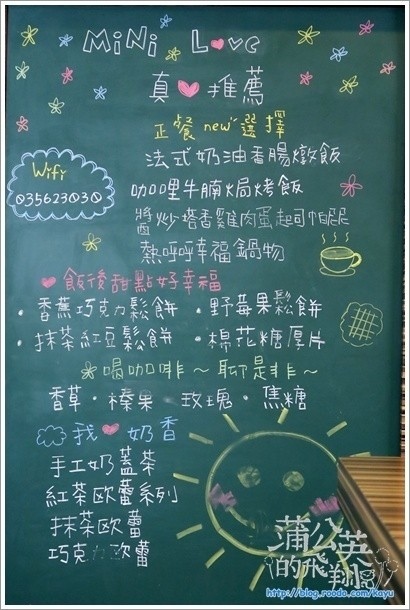 MiNi Love
真♥推薦
正餐 new 選擇
法式奶油香腸燉飯
咖哩牛腩焗烤飯
醬炒塔香雞肉蛋起司帕尼
熱呼呼幸福鍋物
Wifi
035623030
♥飯後甜點好幸福
·香蕉巧克力鬆餅 ·野莓果鬆餅
·抹茶紅豆鬆餅 ·棉花糖厚片
喝咖啡~聊是非~
香草·榛果 玫瑰·焦糖
我♥奶香
手工奶蓋茶
紅茶歐蕾系列
抹茶歐蕾
巧克力歐蕾
蒲公英的飛翔
http://blog.roodo.com/kayu